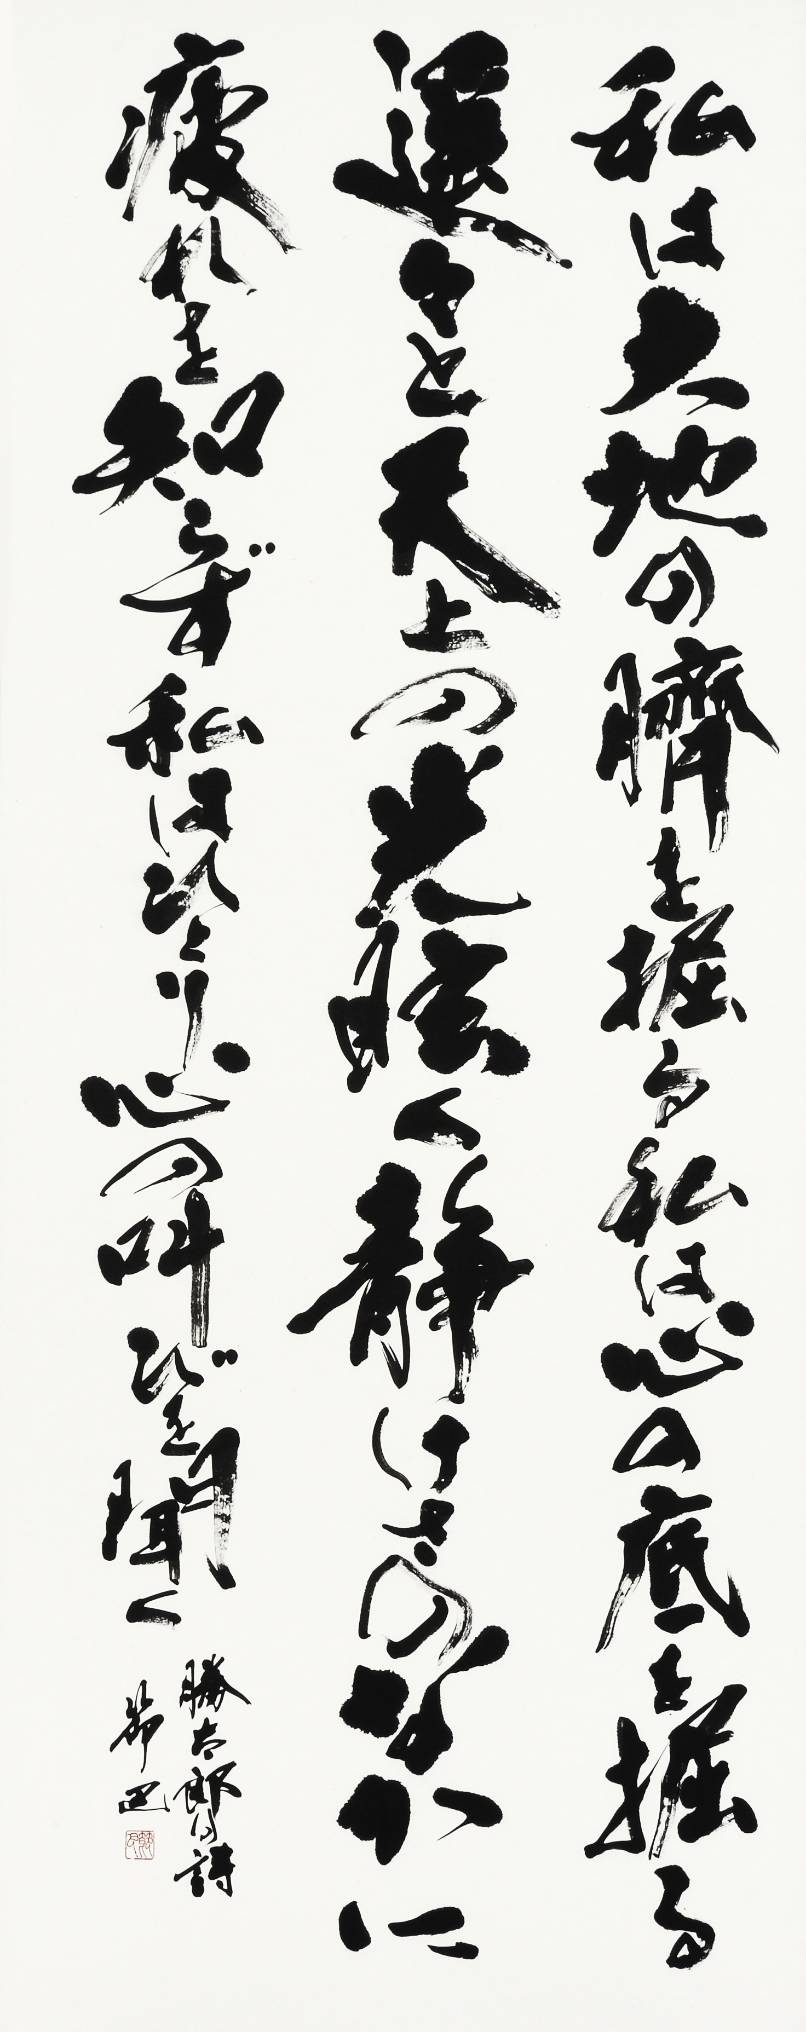 私は大地の臍を掘る私は心の底を掘る
遥々と天上の光眩く静けさのなかに
疲れを知らず私はひとり心の叫びを聞く
勝太郎の詩
節